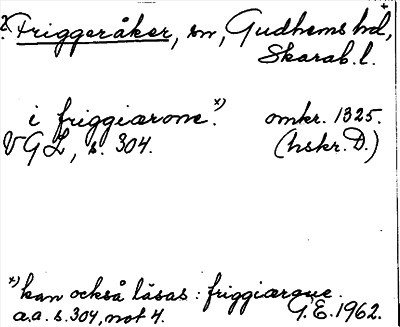 2. Friggeråker, sn, Gudhems hd,
Skarab. l.
i friggiærone.*) omkr. 1325.
VGL, s. 304. (hskr. D.)
*) kan också läsas: friggiærgue.
a.a. s. 304, not 4. G.E. 1962.